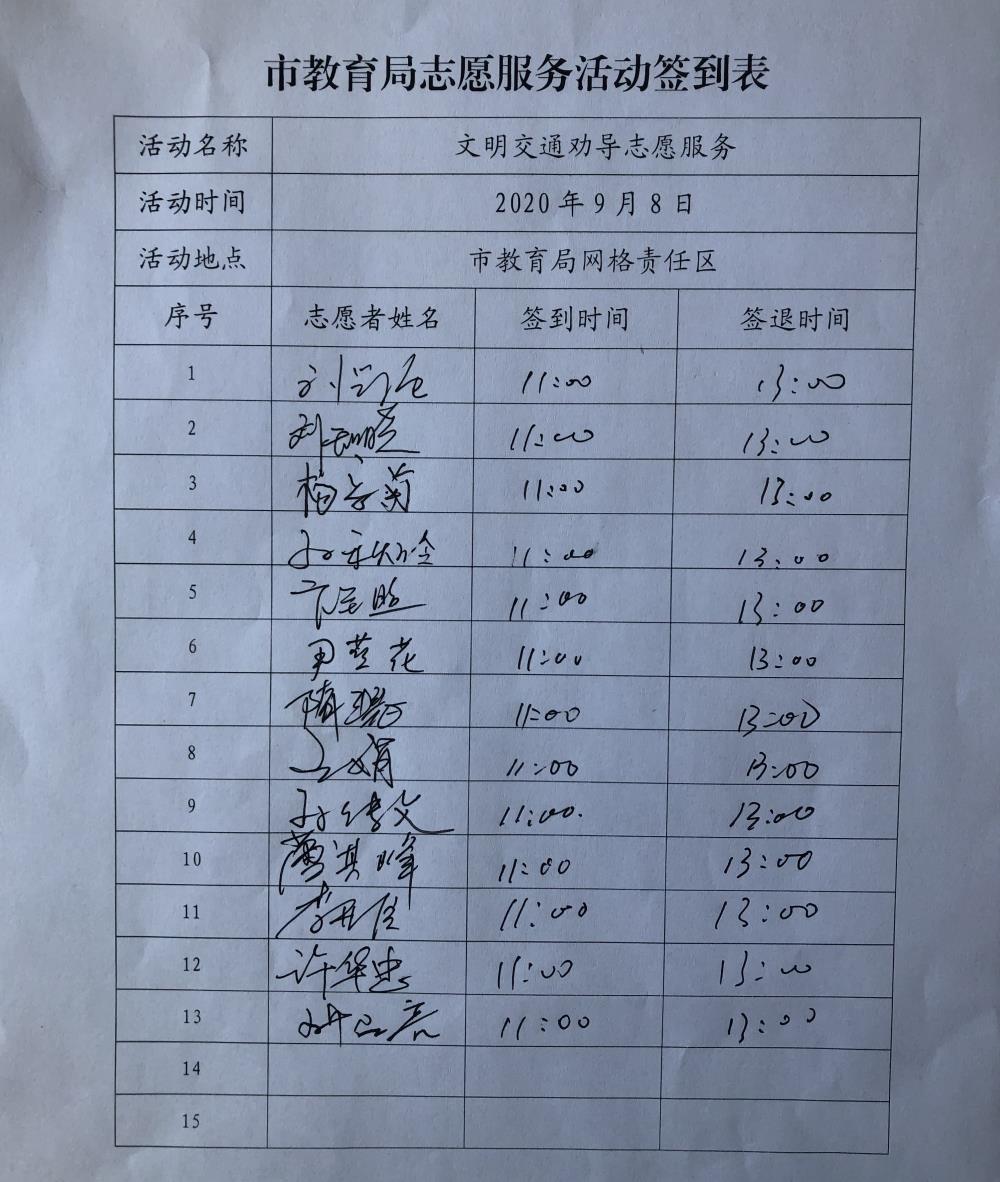 市教育局志愿服务活动签到表
活动名称 文明交通劝导志愿服务
活动时间 2020年9月8日
活动地点 市教育局网格责任区
序号 志愿者姓名 签到时间 签退时间
1 11:00 13:00
2 11:00 13:00
3 11:00 13:00
4 11:00 13:00
5 11:00 13:00
6 11:00 13:00
7 11:00 13:00
8 王娟 11:00 13:00
9 11:00. 13:00
10 11:00 13:00
11 11:00 13:00
12 许华忠 11:00 13:00
13 11:00 13:00
14
15